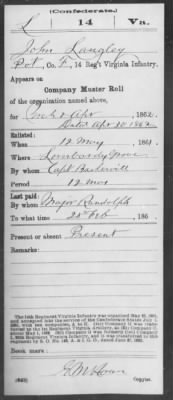 (Confederate.)
L 14 Va.
John Langley
Pvt, Co. F, 14 Reg't Virginia Infantry.
Appears on
Company Muster Roll
of the organization named above,
for Mch & Apr, 1862.
dated Apr 30 1862
Enlisted:
When 12 May, 1861.
Where Lombardy Grove
By whom Capt Baskervill
Period 12 mos
Last paid:
By whom Major Randolph
To what time 28 Feb, 186
Present or absent Present
Remarks:
Book mark:
(642)
Copyist.